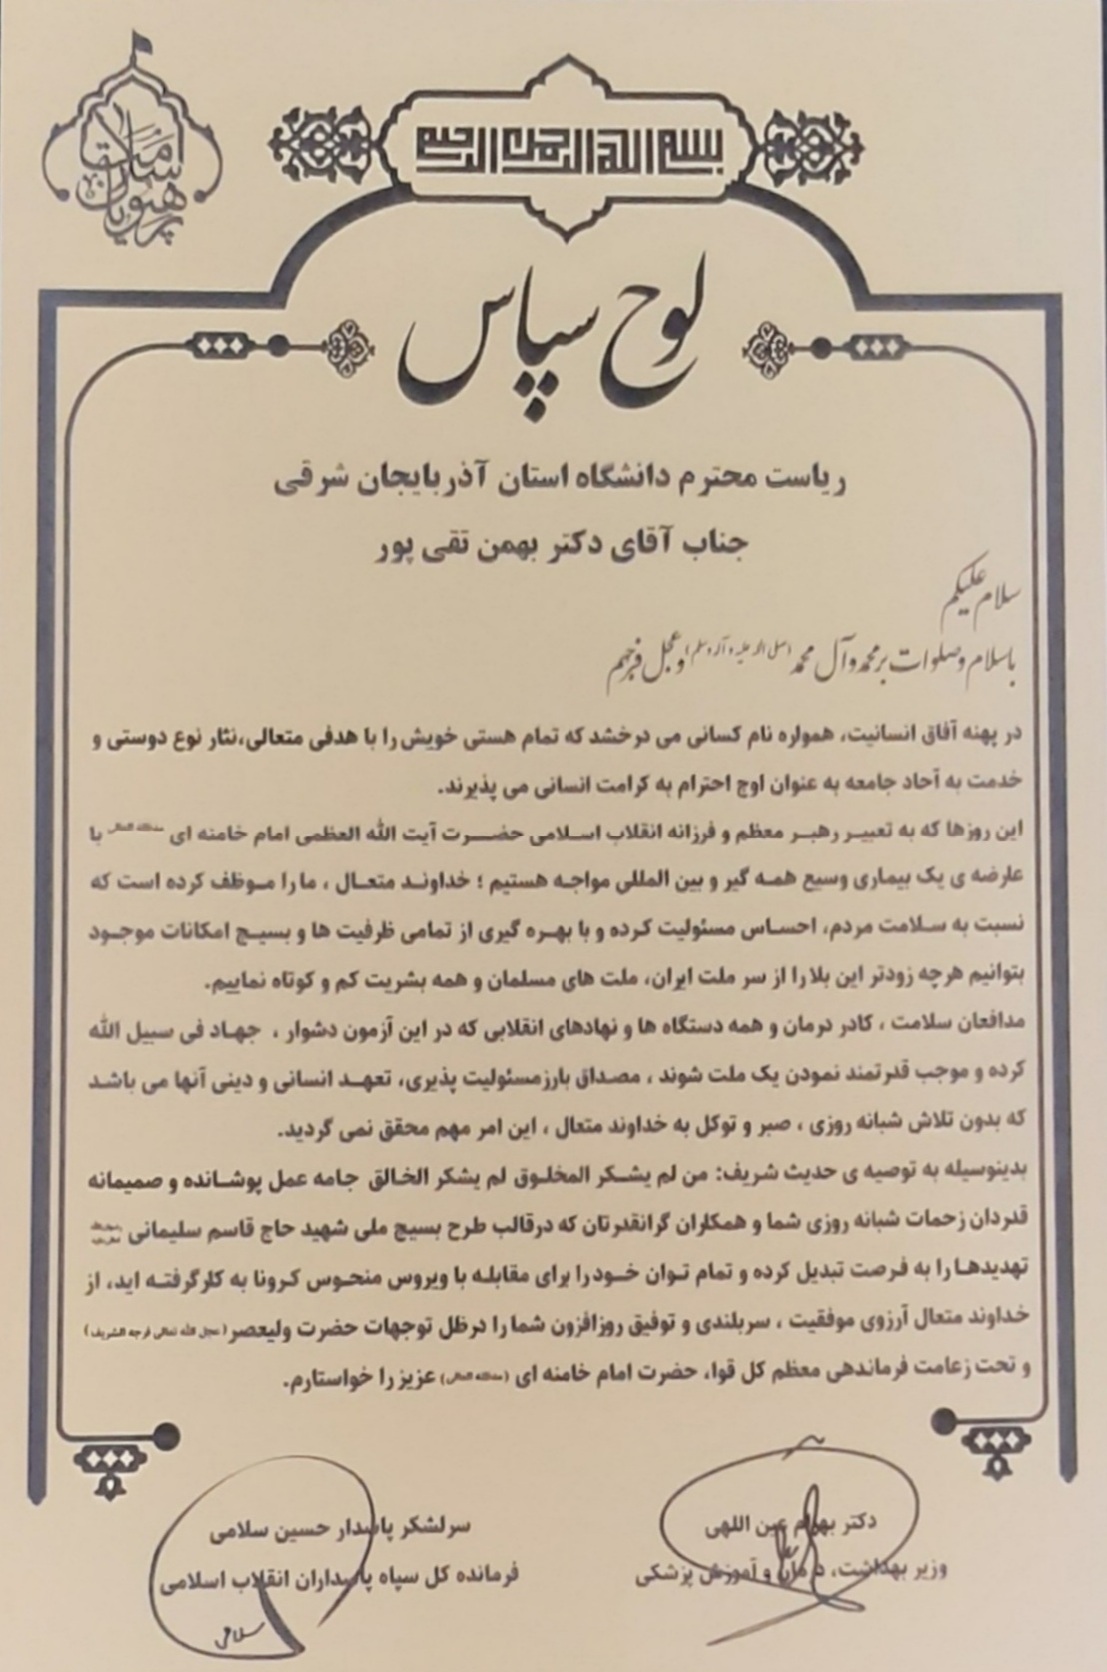 بسم الله الرحمن الرحیم
لوح سپاس
ریاست محترم دانشگاه استان آذربایجان شرقی
جناب آقای دکتر بهمن تقی پور
سلام علیکم
با سلام و صلوات بر محمد و آل محمد (صلی الله علیه و آله وسلم) و عجل فرجهم
در پهنه آفاق انسانیت، همواره نام کسانی می درخشد که تمام هستی خویش را با هدفی متعالی،نثار نوع دوستی و
خدمت به آحاد جامعه به عنوان اوج احترام به کرامت انسانی می پذیرند.
این روزها که به تعبیر رهبر معظم و فرزانه انقلاب اسلامی حضرت آیت الله العظمی امام خامنه ای با
عارضه ی یک بیماری وسیع همه گیر و بین المللی مواجه هستیم ؛ خداوند متعال ، ما را موظف کرده است که
نسبت به سلامت مردم، احساس مسئولیت کرده و با بهره گیری از تمامی ظرفیت ها و بسیج امکانات موجود
بتوانیم هرچه زودتر این بلا را از سر ملت ایران، ملت های مسلمان و همه بشریت کم و کوتاه نماییم.
مدافعان سلامت ، کادر درمان و همه دستگاه ها و نهادهای انقلابی که در این آزمون دشوار ، جهاد فی سبیل الله
کرده و موجب قدرتمند نمودن یک ملت شوند ، مصداق بارزمسئولیت پذیری، تعهد انسانی و دینی آنها می باشد
که بدون تلاش شبانه روزی ، صبر و توکل به خداوند متعال ، این امر مهم محقق نمی گردید.
بدینوسیله به توصیه ی حدیث شریف: من لم یشکر المخلوق لم یشکر الخالق جامه عمل پوشانده و صمیمانه
قدردان زحمات شبانه روزی شما و همکاران گرانقدرتان که درقالب طرح بسیج ملی شهید حاج قاسم سلیمانی
تهدیدها را به فرصت تبدیل کرده و تمام توان خود را برای مقابله با ویروس منحوس کرونا به کارگرفته اید، از
خداوند متعال آرزوی موفقیت ، سربلندی و توفیق روزافزون شما را درظل توجهات حضرت ولیعصر (عجل الله تعالی فرجه الشریف)
و تحت زعامت فرماندهی معظم کل قوا، حضرت امام خامنه ای عزیز را خواستارم.
دکتر بهرام عین اللهی
وزیر بهداشت، درمان و آموزش پزشکی
سرلشکر پاسدار حسین سلامی
فرمانده کل سپاه پاسداران انقلاب اسلامی
سلامی